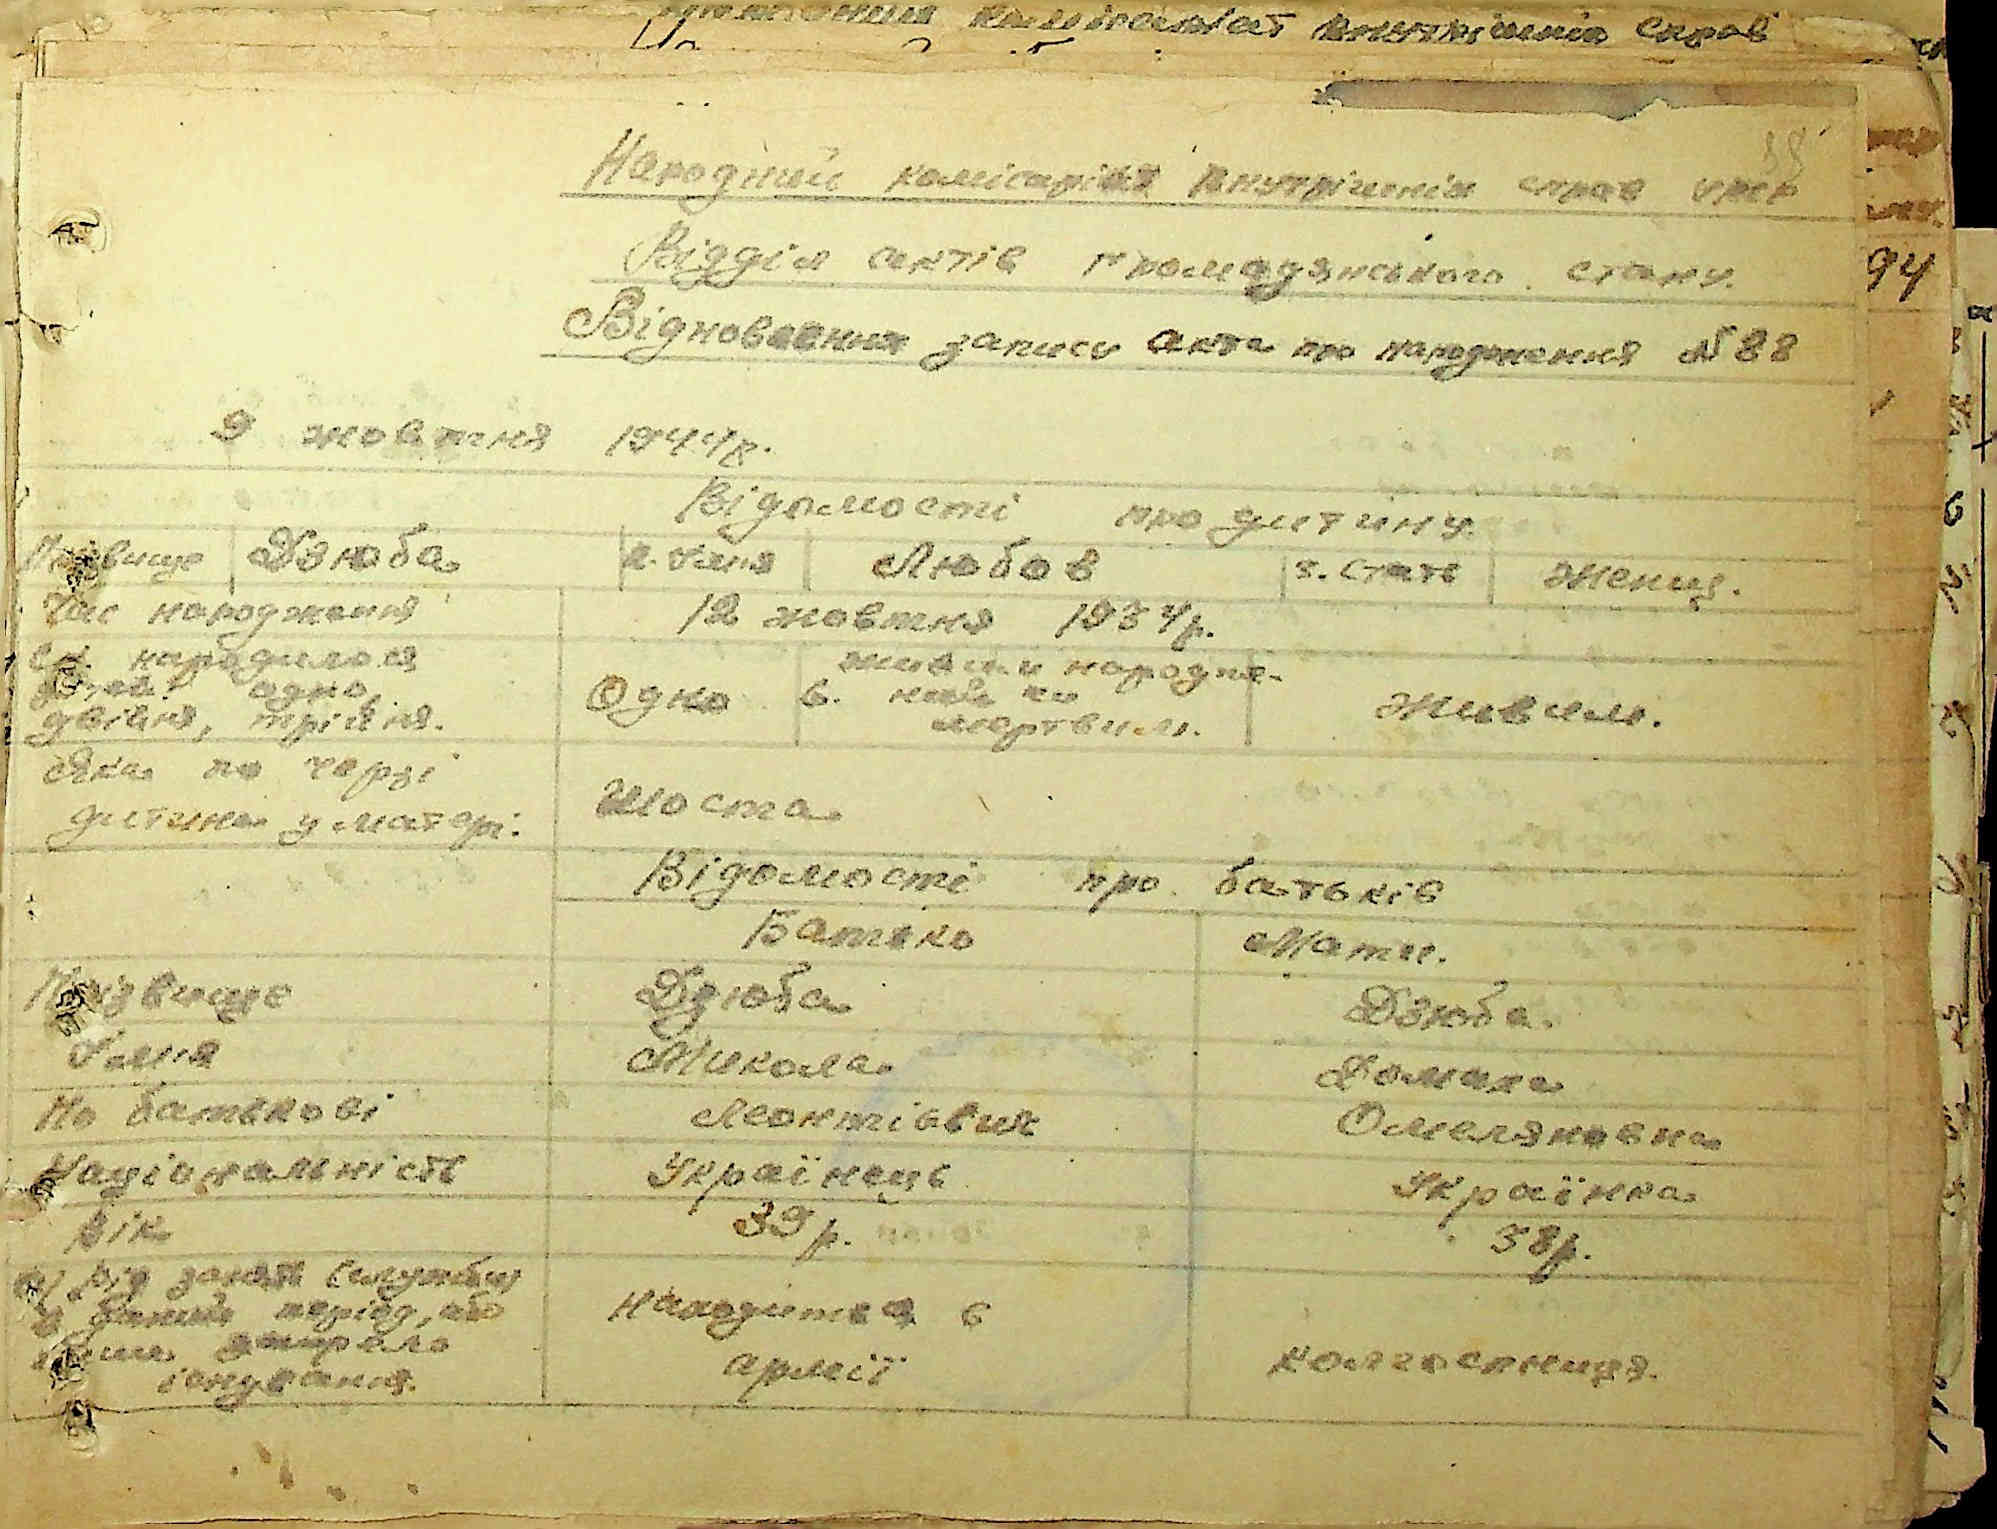 комісаріат внутрішніх справ
Народний комісаріат внутрішніх справ УРСР
Відділ актів громадянського стану.
94
Відновлення запису акта про народження №88
9 жовтня 1944р.
Відомості про дитину.
Прізвище Дзюба 2. Ім'я Любов 3. Стать Женщ.
Час народження 12 жовтня 1934р.
народилося
одно,
двійня, трійня.
Одно
6. живим народже-
ний чи
мертвим.
Живим.
Яка по черзі
дитина у матері.
Шоста
Відомості про батьків
Батько Мати.
Прізвище Дзюба Дзюба.
Ім'я Микола Домаха
По батькові Леонтієвич Омеляновна
Національність Українець Українка
Вік 39р. 38р.
рід занять (служби)
в даний період, або
джерело
існування.
Находится в
армії
колгоспниця.